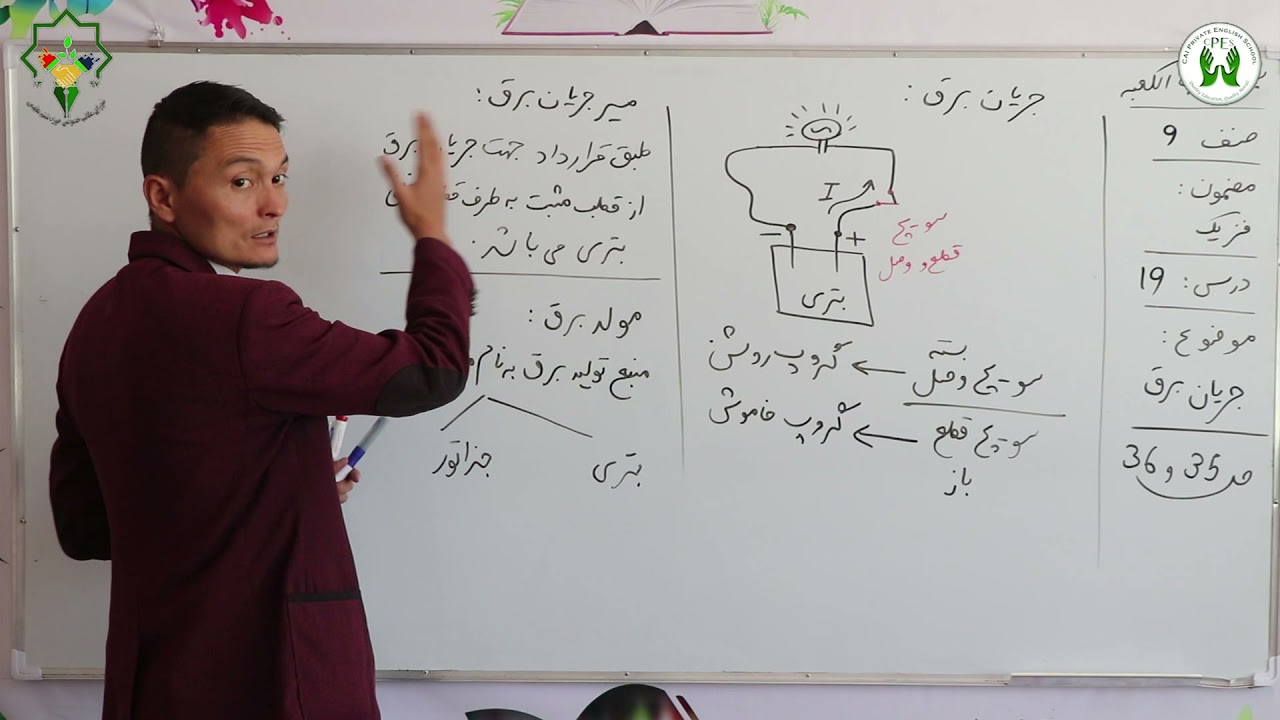 الکعبه
صنف 9
مضمون:
فزیک
درس: 19
موضوع:
جریان برق
صـ 35 و 36
جریان برق:
I
− +
بتری
سویچ
قطع و وصل
بسته
سویچ وصل ← گروپ روشن
سویچ قطع ← گروپ خاموش
باز
میر جریان برق:
طبق قرارداد جهت جریان برق
از قطب مثبت به طرف
بتری می باشد.
مولد برق:
منبع تولید برق به نام
بتری
جنراتور
CAI PRIVATE ENGLISH SCHOOL
CPES